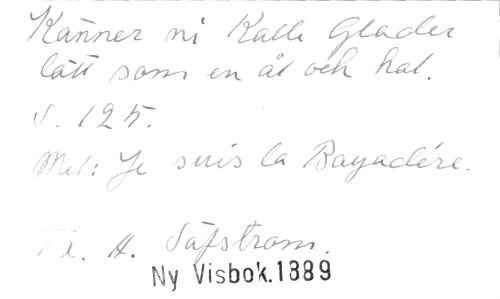 Känner ni Kalle Glader
lätt som en ål och hal.
s. 125.
Mel: Je suis la Bayadére.
H. Säfstrom.
Ny Visbok.1889